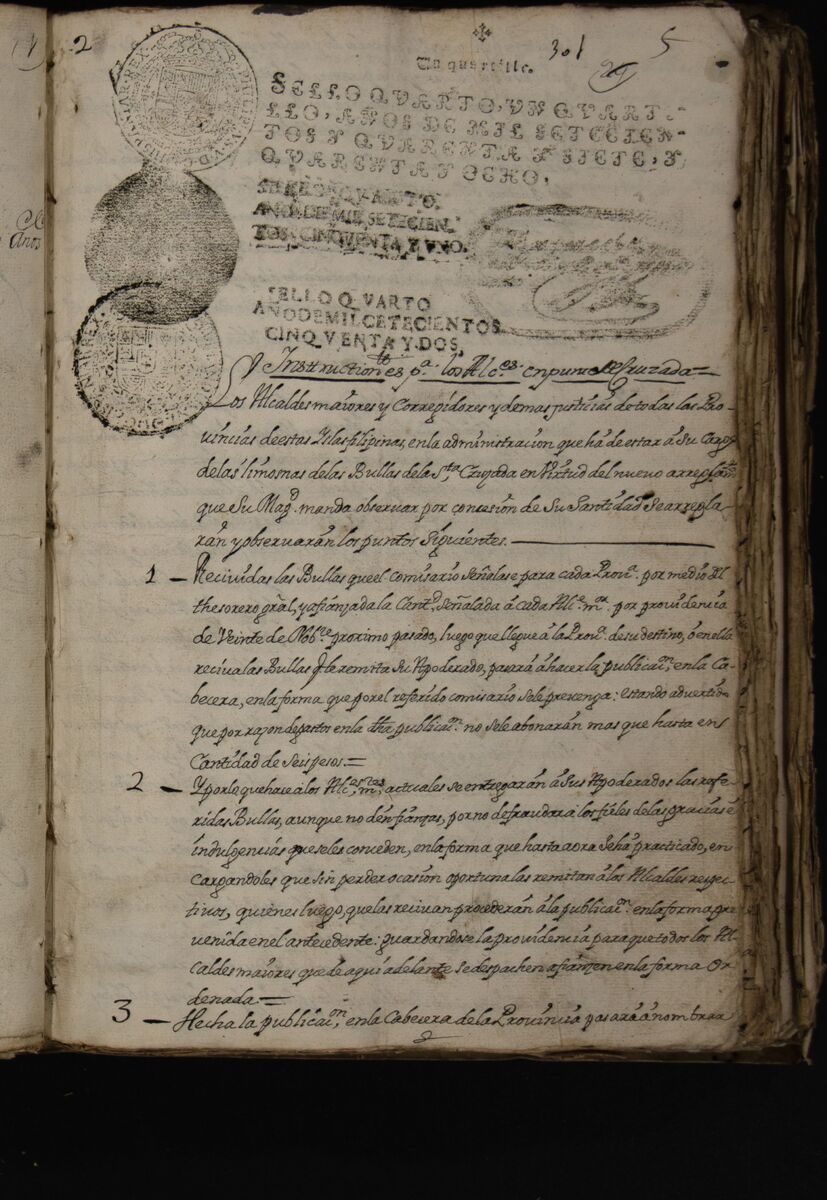 2
301
5
Un quartillo.
SELLO QVARTO, VN QVARTI-
LLO, AÑOS DE MIL SETECIEN-
TOS Y QVARENTA Y SIETE, Y
QVARENTA Y OCHO.
SELLO QVARTO.
AÑO DE MIL SETECIEN-
TOS CINQVENTA Y VNO.
SELLO QVARTO
AÑO DE MIL CETECIENTOS
CINQVENTA Y DOS,
Instructiones pa. los Alces. en puntto de Cruzada=
Los Alcaldes maiores y Corregidores y demas justicias de todas las Pro-
uincias de estas Yslas filipinas, en la administracion que há de estar â Su Cargo
de las limosnas de las Bullas de la Sta. Cruzada en Virtud del nuevo arreglamto.
que Su Magd. manda observar por concesion de Su Santidad Se arregla-
rán y observarán los puntos Siguientes.
1 — Recividas las Bullas que el Comisario Señalase para cada Prova. por medio del
thesorero gral, y afianzada la Cantd. Señalada â cada Alce. mor. por providencia
de Veinte de Nobre. proximo pasado, luego que llegue â la Prova. de su destino, ò en ella
reciva las Bullas q le remita Su Apoderado, pasará â hacer la publicacon. en la Ca-
becera, en la forma que por el referido comisario Se le prevenga: estando advertido
que por razon de gastos en la dha publicacon. no Se le abonarán mas que hasta en
Cantidad de Seis pesos.=
2 — Y por lo que hace a los Alces. mres. actuales se entregarán â Sus Apoderados las refe-
ridas Bullas, aunque no den fianzas, por no defraudar a los fieles de las gracias é
indulgencias que se les conceden, en la forma que hasta aora Se há practicado, en
Cargandoles que Sin perder ocasion oportuna las remitan a los Alcaldes respec-
tivos, quienes luego, que las recivan procederán â la publicacon. en la forma pre
venida en el antecedente: guardandose la providencia para que todos los Al-
caldes maiores que de aqui adelante Se despachen afianzen en la forma Or
denada=
3 — Hecha la publicacon. en la Cabecera de la Provincia pasará â nombrar